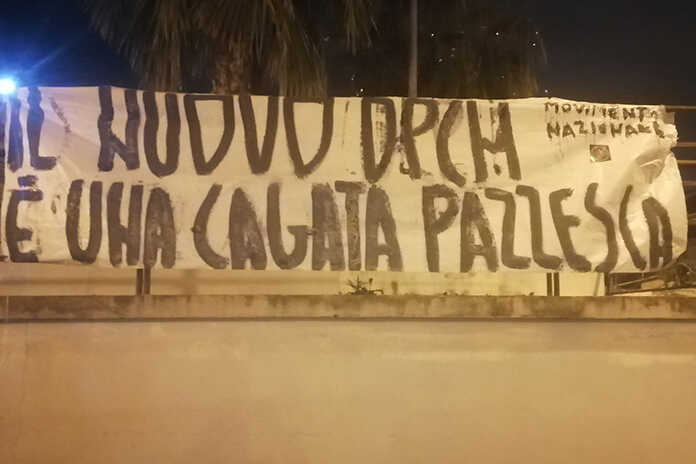 IL NUOVO DPCM
MOVIMENTO
NAZIONALE
È UNA CAGATA PAZZESCA